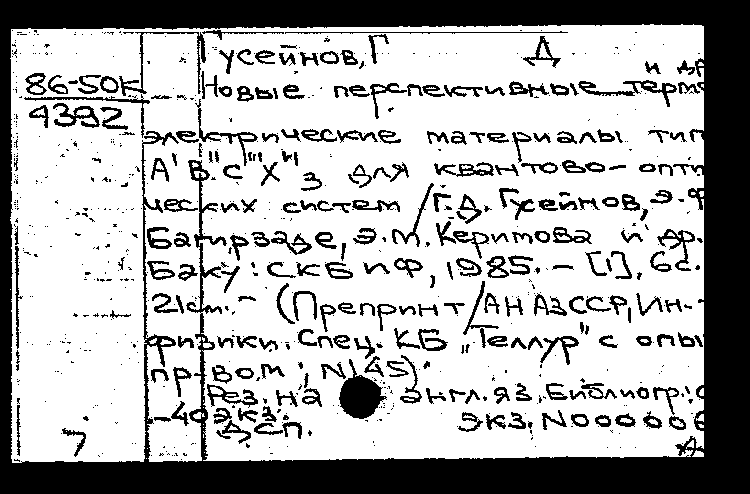 Гусейнов, Г Д
и др
86-50К
4392
Новые перспективные термо
электрические материалы тип
А' В" С'" Х"' 3 для квантово-опти
ческих систем / Г.Д. Гусейнов, Э.Ф
Багирзаде, Э.М. Керимова и др.
Баку: СКБиФ, 1985. - [1], 6с.
21см. - (Препринт / АН АзССР, Ин-
физики. Спец. КБ „Теллур" с опы
пр-вом; N145).
Рез. на англ. яз. Библиогр.: с
-40 экз.
ДСП. экз. N00006
7